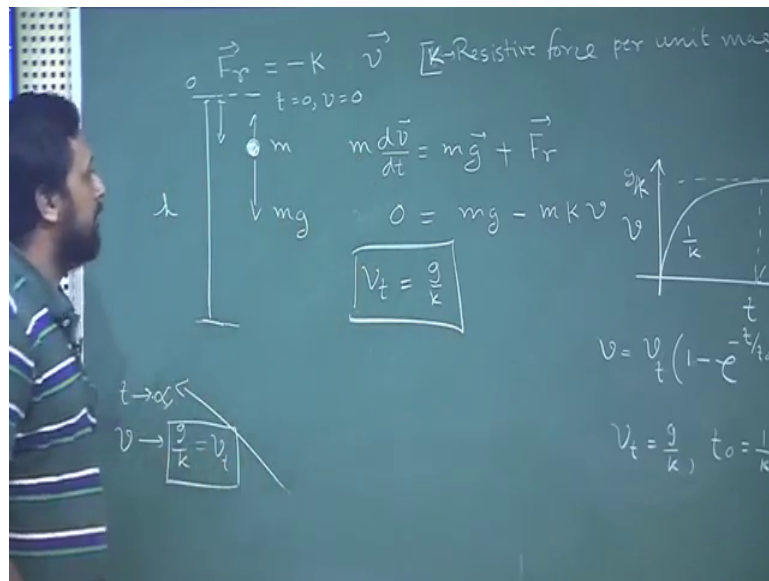 F⃗r = -K v⃗ [K→Resistive force per unit mas
0
t=0, v=0
m
m dv⃗/dt = mg⃗ + F⃗r
h
mg
0 = mg - mkv
Vt = g/k
g/k
v
1/k
t
v = vt (1 - e^-t/to
t→∝
v → g/k = vt
Vt = g/k, to = 1/k